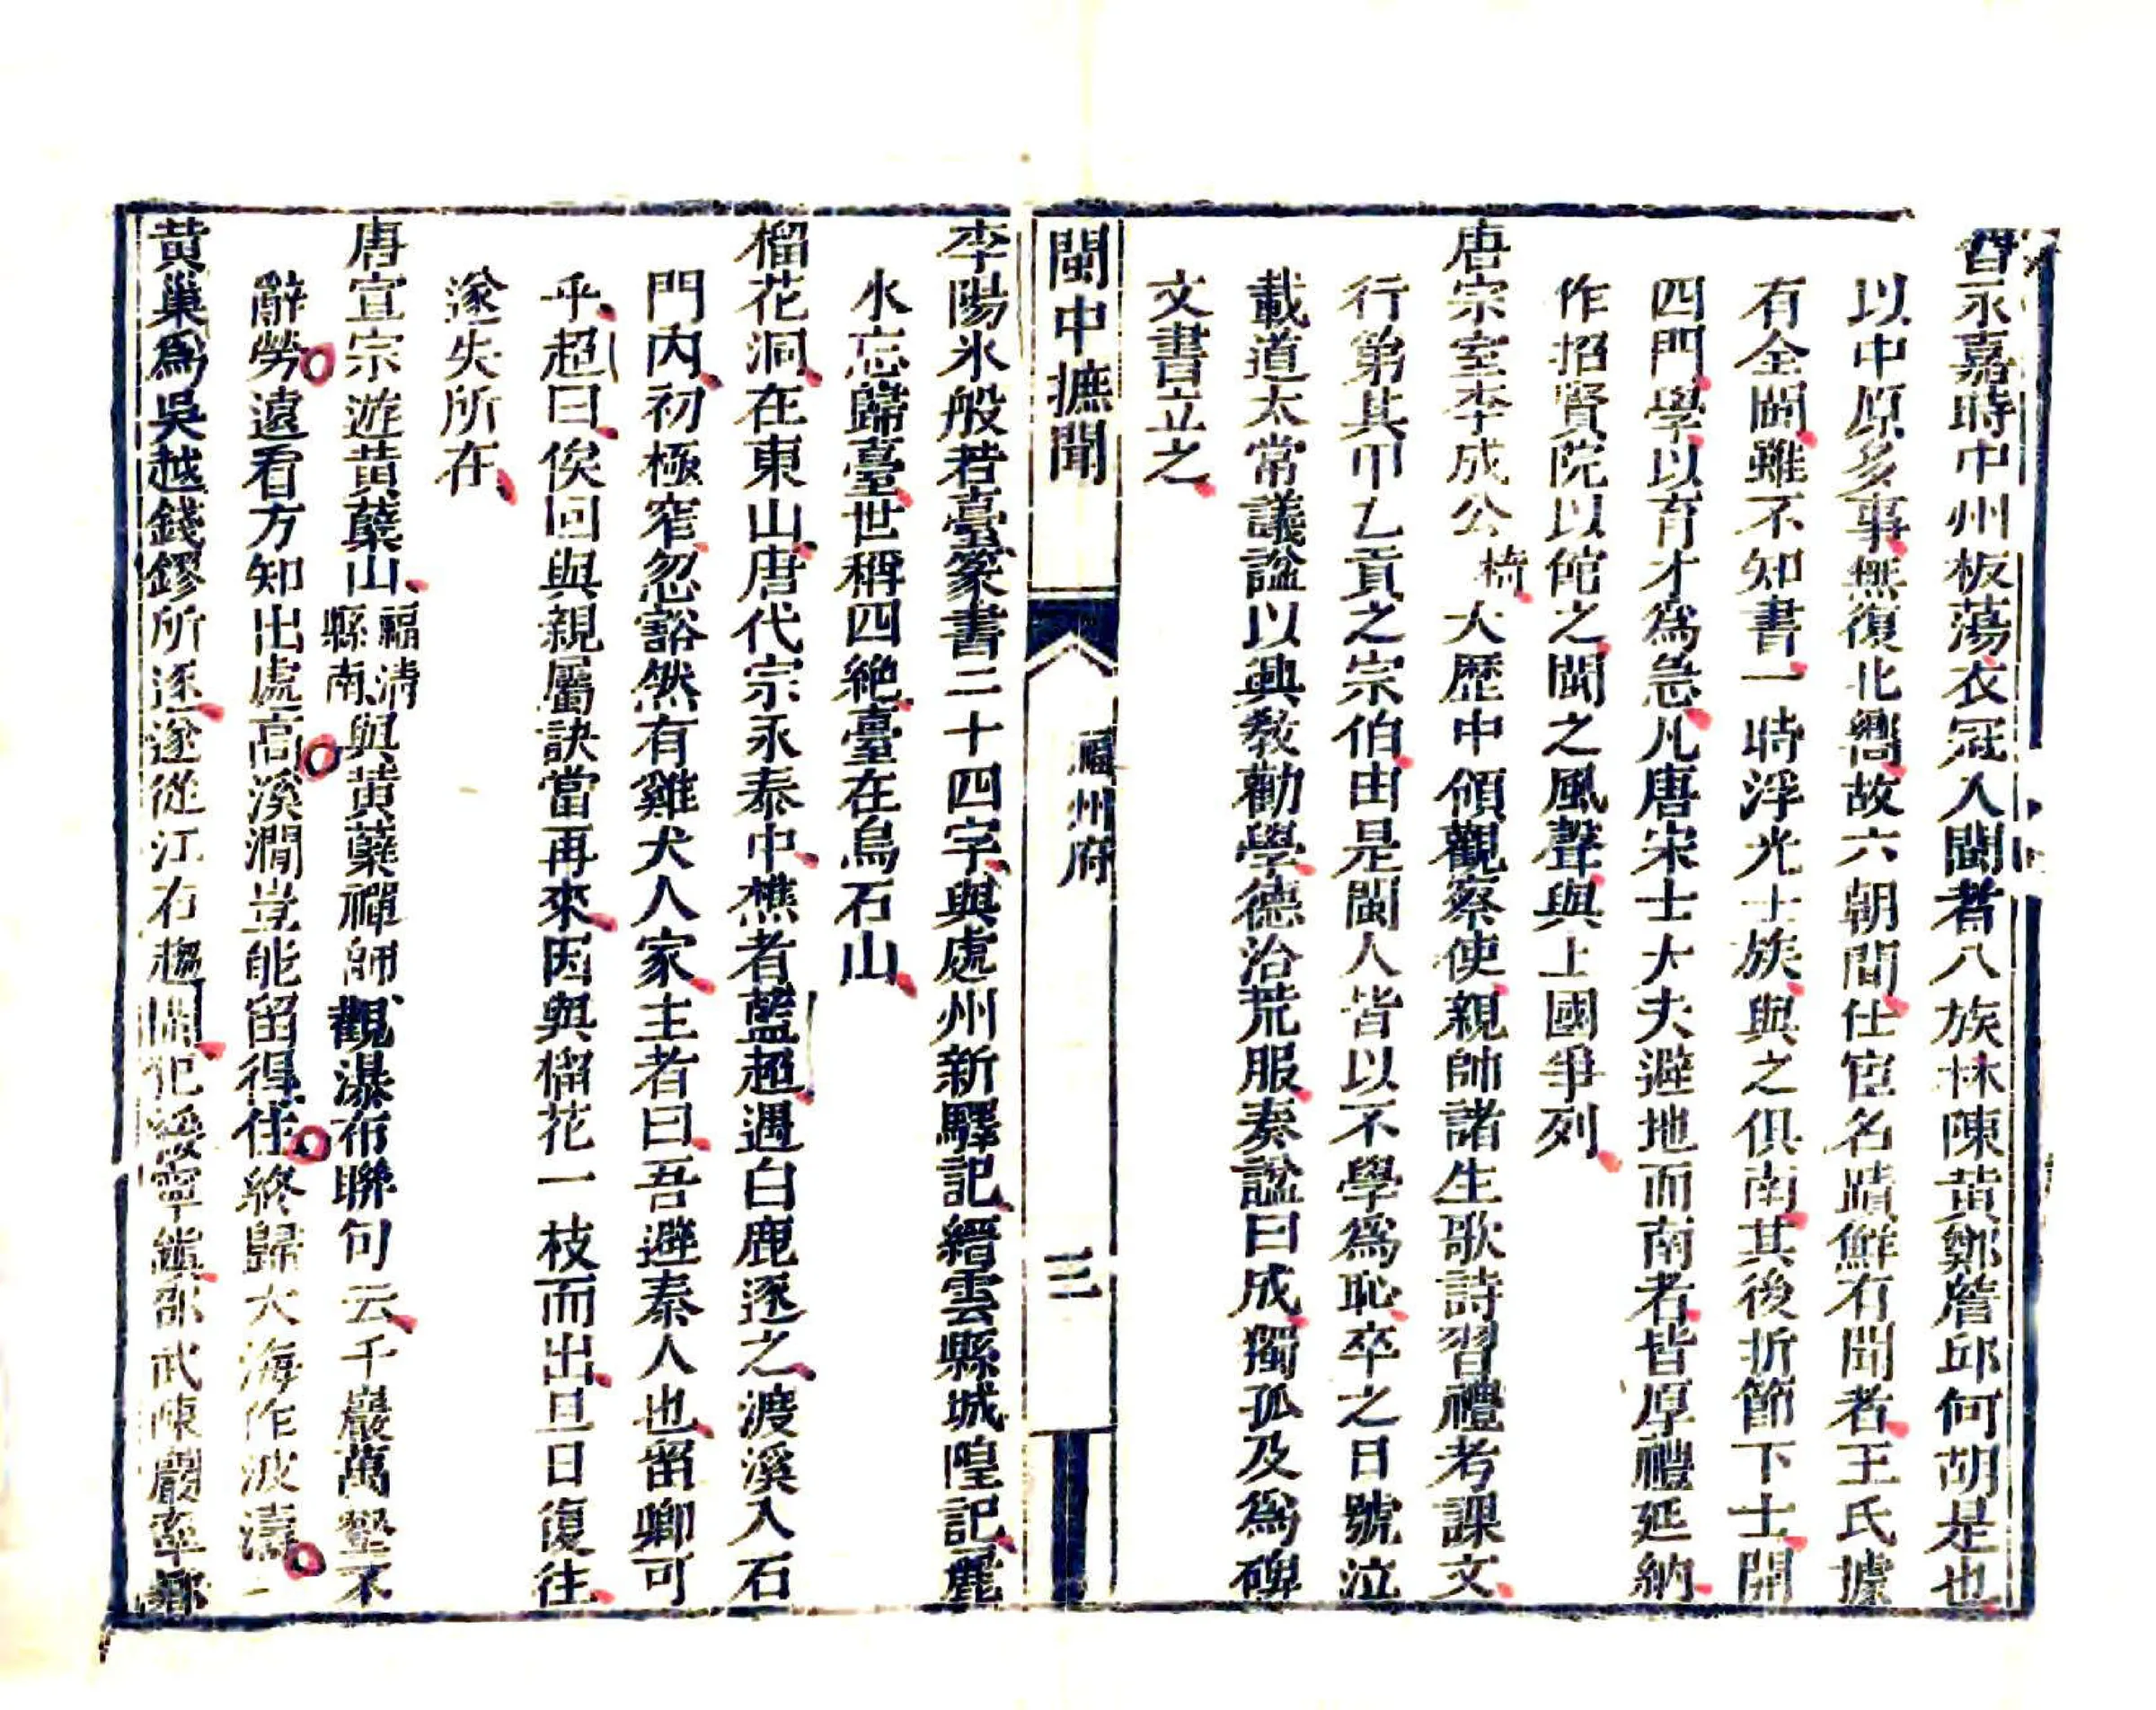 晉永嘉時中州板蕩衣冠入閩者八族林陳黃鄭詹邱何胡是也
以中原多事無復北嚮故六朝間仕宦名蹟鮮有聞者王氏據
有全閩雖不知書一時浮光士族與之俱南其後折節下士開
四門學以育才為急凡唐宋士大夫避地而南者皆厚禮延納
作招賢院以館之閩之風聲與上國爭列
唐宗室李成公椅大歷中領觀察使親帥諸生歌詩習禮考課文
行第其甲乙貢之宗伯由是閩人皆以不學為恥卒之日號泣
載道太常議諡以興教勸學德洽荒服奏諡曰成獨孤及為碑
文書立之
閩中摭聞
福州府
三
李陽氷般若臺篆書二十四字與處州新驛記縉雲縣城隍記麗
水忘歸臺世稱四絶臺在烏石山
榴花洞在東山唐代宗永泰中樵者藍超遇白鹿逐之渡溪入石
門内初極窄忽豁然有雞犬人家主者曰吾避秦人也留卿可
乎超曰俟回與親屬訣當再來因與榴花一枝而出旦日復往
遂失所在
唐宣宗遊黃蘗山福清縣南與黃蘗禪師觀瀑布聯句云千巖萬壑不
辭勞遠看方知出處高溪澗豈能留得住終歸大海作波濤
黃巢為吳越錢鏐所逐遂從江右趨閩犯 寧鎮邵武陳巖率鄉